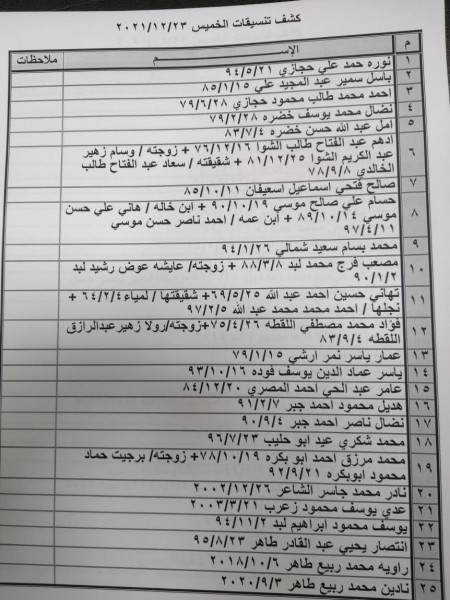 كشف تنسيقات الخميس ٢٠٢١/١٢/٢٣
م الإســـــم ملاحظات
١ نوره حمد علي حجازي ٩٤/٥/٢١
٢ باسل سمير عبد المجيد علي ٨٥/١/١٥
٣ احمد محمد طالب محمود حجازي ٧٩/٦/٢٨
٤ نضال محمد يوسف خضره ٧٩/٢/٢٨
٥ امل عبد الله حسن خضره ٨٣/٧/٤
٦ ادهم عبد الفتاح طالب الشوا ٧٦/١٢/١٦ + زوجته / وسام زهير
عبد الكريم الشوا ٨١/١٢/٢٥ + شقيقته / سعاد عبد الفتاح طالب
الخالدي ٧٨/٩/٨
٧ صالح فتحي اسماعيل اسعيفان ٨٥/١٠/١١
٨ حسام علي صالح موسي ٩٠/١٠/١٩ + ابن خاله / هاني علي حسن
موسي ٨٩/١٠/١٤ + ابن عمه / احمد ناصر حسن موسي
٩٧/٤/١١
٩ محمد بسام سعيد شمالي ٩٤/١/٢٦
١٠ مصعب فرج محمد لبد ٨٨/٣/٨ + زوجته/ عايشه عوض رشيد لبد
٩٠/١/٢
١١ تهاني حسين احمد عبد الله ٦٩/٥/٢٥+ شقيقتها / لمياء٦٤/٢/٤ +
نجلها / احمد محمد محمد عبد الله ٩٧/٢/٥
١٢ فؤاد محمد مصطفي اللقطه ٧٥/٤/٢٦+زوجته/رولا زهيرعبدالرازق
اللقطه ٨٣/٩/٤
١٣ عمار ياسر نمر ارشي ٧٩/١/١٥
١٤ ياسر عماد الدين يوسف فوده ٩٣/١٠/١٦
١٥ عامر عبد الحي احمد المصري ٨٤/١٢/٢٠
١٦ هديل محمود احمد جبر ٩١/٢/٧
١٧ نضال ناصر احمد جبر ٩٠/٩/٤
١٨ محمد شكري عيد ابو حليب ٩٦/٧/٢٣
١٩ محمد مرزق احمد ابو بكره ٧٨/١٠/١٩+ زوجته/ برجيت حماد
محمود ابوبكره ٩٢/٩/٢١
٢٠ نادر محمد جاسر الشاعر ٢٠٠٢/١٢/٢٦
٢١ عدي يوسف محمود زعرب ٢٠٠٣/٣/٢١
٢٢ يوسف محمود ابراهيم لبد ٩٤/١١/٢
٢٣ انتصار يحيي عبد القادر طاهر ٩٥/٨/٢٣
٢٤ راويه محمد ربيع طاهر ٢٠١٨/١٠/٦
٢٥ نادين محمد ربيع طاهر ٢٠٢٠/٩/٣